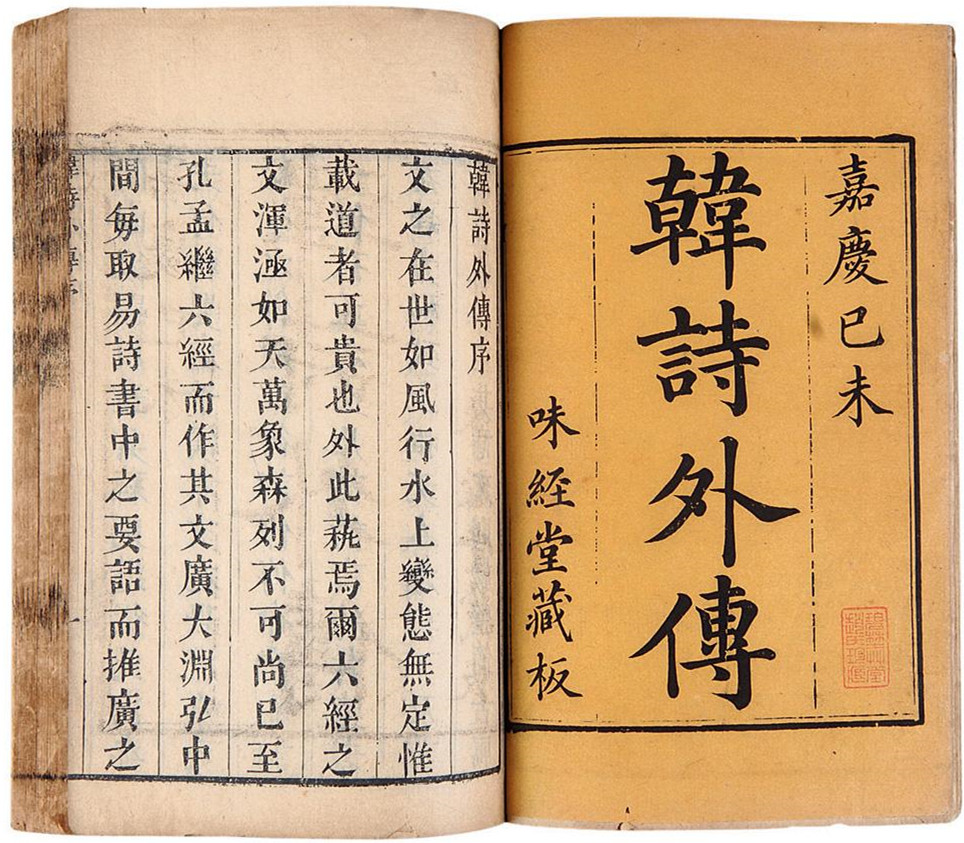 嘉慶已未
韓詩外傳
味經堂藏板
韓詩外傳序
文之在世如風行水上變態無定惟
載道者可貴也外此蓺焉爾六經之
文渾涵如天萬象森列不可尚已至
孔孟繼六經而作其文廣大淵弘中
間每取易詩書中之要語而推廣之